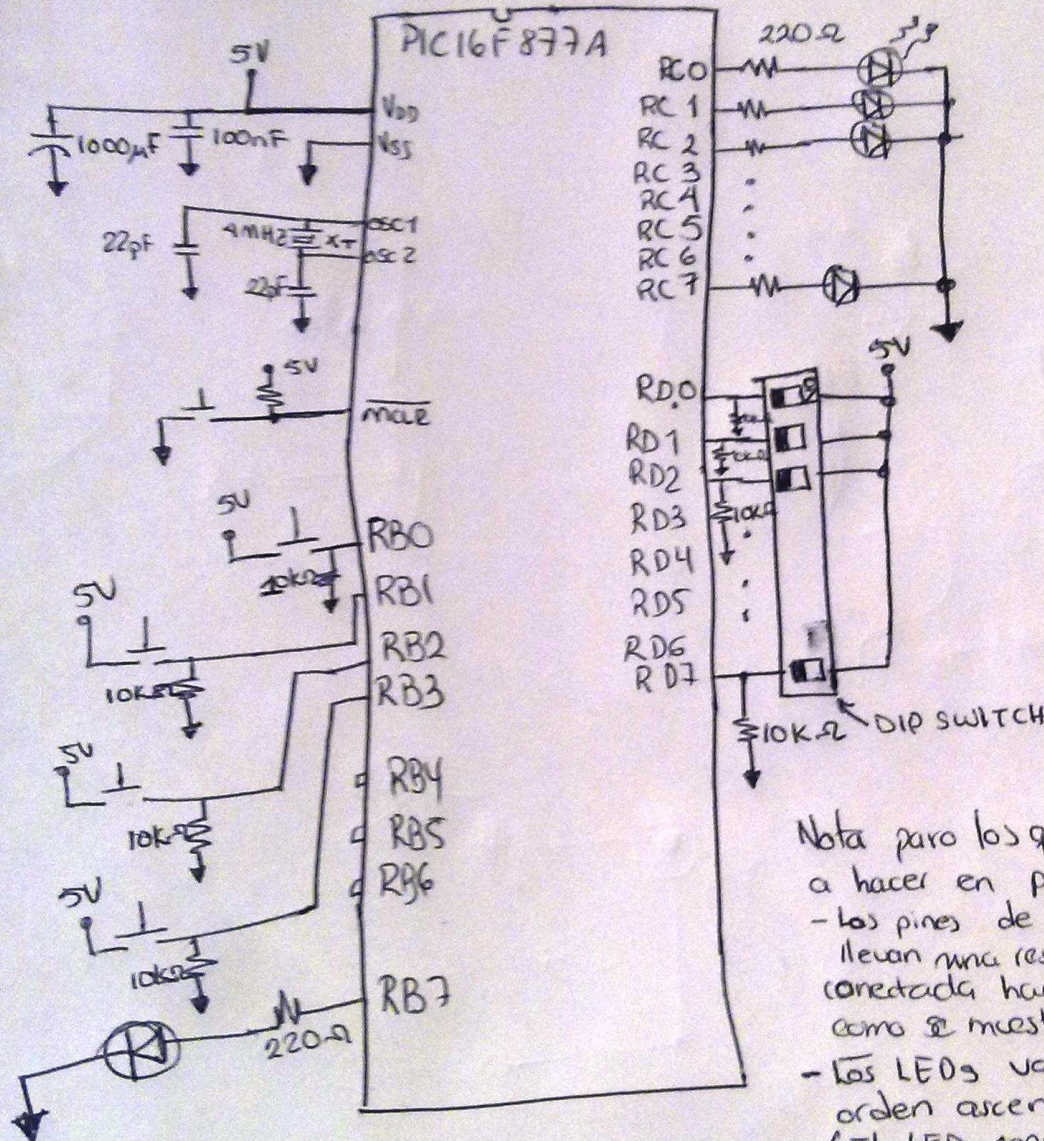 PIC16F877A
5V
1000µF
100nF
VDD
VSS
22pF
4MHZ
XT
OSC1
OSC2
22pF
5V
MCLR
5V
RB0
10kΩ
RB1
5V
RB2
10kΩ
RB3
5V
RB4
10kΩ
RB5
RB6
5V
10kΩ
RB7
220Ω
220Ω
RC0
RC1
RC2
RC3
RC4
RC5
RC6
RC7
5V
RD0
RD1
RD2
10kΩ
RD3
RD4
RD5
RD6
RD7
10KΩ
DIP SWITCH
Nota para los
a hacer en
- Los pines de
llevan una
conectada
como se
- Los LEDs
orden